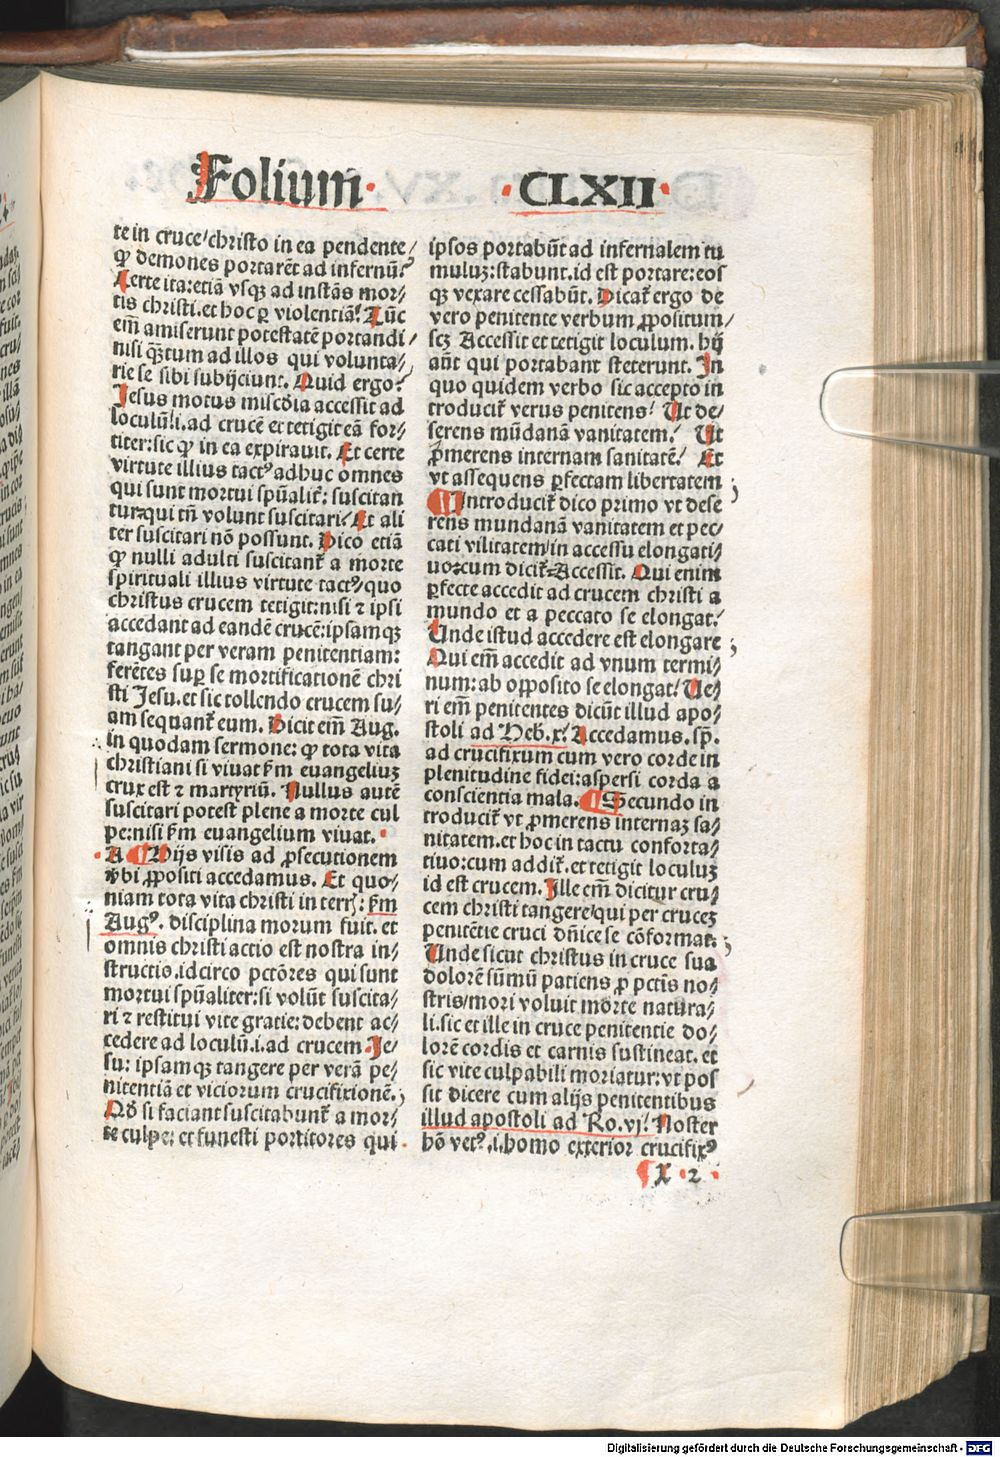 Folium · CLXII ·
te in cruce/christo in ea pendente/
ꝙ demones portarēt ad infernū?
Certe ita: etiā vsqꝫ ad instās mor/
tis christi. et hoc ꝑ violentiā! Tūc
em̄ amiserunt potestatē portandi/
nisi qꝫtum ad illos qui volunta/
rie se sibi subijciunt. Quid ergo?
Jesus motus miscd̄ia accessit ad
loculū.i. ad crucē et tetigit eā for/
titer: sic ꝙ in ea expirauit. Et certe
virtute illius tactꝰ adhuc omnes
qui sunt mortui spūalit̄: suscitan
tur: qui tn̄ volunt suscitari! Et ali
ter suscitari nō possunt. Dico etiā
ꝙ nulli adulti suscitant̄ a morte
spirituali illius virtute tactꝰ/quo
christus crucem tetigit: nisi ⁊ ipsi
accedant ad eandē crucē: ipsamqꝫ
tangant per veram penitentiam:
ferētes suꝑ se mortificationē chri
sti Jesu. et sic tollendo crucem su/
am sequant̄ eum. Dicit em̄ Aug.
in quodam sermone: ꝙ tota vita
christiani si viuat fm̄ euangeliuꝫ
crux est ⁊ martyriū. Nullus autē
suscitari potest plene a morte cul
pe: nisi fm̄ euangelium viuat.
A ¶ Hijs visis ad ꝓsecutionem
v̄bi ꝓpositi accedamus. Et quo/
niam tota vita christi in terꝭ: fm̄
Augꝰ. disciplina morum fuit. et
omnis christi actio est nostra in/
structio. idcirco pctōres qui sunt
mortui spūaliter: si volūt suscita/
ri ⁊ restitui vite gratie: debent ac/
cedere ad loculū.i. ad crucem Je/
su: ipsamqꝫ tangere per verā pe/
nitentiā et viciorum crucifixionē.
Qd̄ si faciant suscitabunt̄ a mor/
te culpe: et funesti portitores qui
ipsos portabūt ad infernalem tu
muluꝫ: stabunt. id est portare: eos
qꝫ vexare cessabūt. Dicat̄ ergo de
vero penitente verbum ꝓpositum/
scꝫ Accessit et tetigit loculum. hij
aūt qui portabant steterunt. In
quo quidem verbo sic accepto in
troducit̄ verus penitens! Ut de/
serens mūdanā vanitatem! Ut
ꝓmerens internam sanitatē! Et
vt assequens ꝑfectam libertatem
¶ Introducit̄ dico primo vt dese
rens mundanā vanitatem et pec/
cati vilitatem/in accessu elongati/
uo: cum dicit̄ Accessit. Qui enim
ꝑfecte accedit ad crucem christi a
mundo et a peccato se elongat.
Unde istud accedere est elongare
Qui em̄ accedit ad vnum termi/
num: ab opposito se elongat! Ue/
ri em̄ penitentes dicūt illud apo/
stoli ad Heb.x! Accedamus. sp̄.
ad crucifixum cum vero corde in
plenitudine fidei: aspersi corda a
conscientia mala. ¶ Secundo in
troducit̄ vt ꝓmerens internaꝫ sa/
nitatem. et hoc in tactu conforta/
tiuo: cum addit̄. et tetigit loculuꝫ
id est crucem. Ille em̄ dicitur cru/
cem christi tangere/qui per cruceꝫ
penitētie cruci dn̄ice se cōformat.
Unde sicut christus in cruce sua
dolorē sūmū patiens ꝓ pctīs no/
stris/mori voluit morte natura/
li. sic et ille in cruce penitentie do/
lorē cordis et carnis sustineat. et
sic vite culpabili moriatur: vt pos
sit dicere cum alijs penitentibus
illud apostoli ad Ro.vj! Noster
hō vetꝰ .i. homo exterior crucifixꝰ
X 2
Digitalisierung gefördert durch die Deutsche Forschungsgemeinschaft - DFG